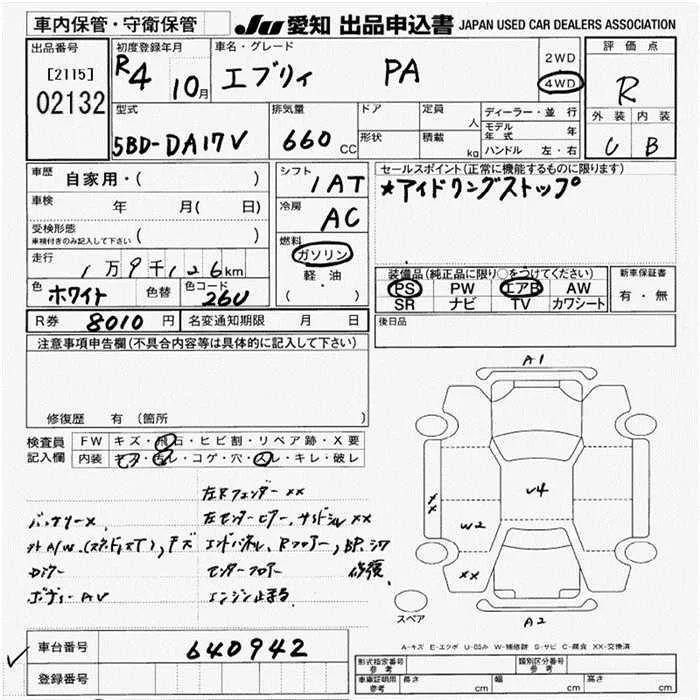 車内保管・守衛保管
JU 愛知 出品申込書 JAPAN USED CAR DEALERS ASSOCIATION
出品番号
[2115]
02132
初度登録年月
R4 10月
車名・グレード
エブリィ PA
2WD
4WD
評価点
R
外装 内装
U B
型式
5BD-DA17V
排気量
660 CC
ドア
形状
定員
人
積載
kg
ディーラー・並行
モデル年式 年
ハンドル 左・右
車歴 自家用・( )
車検 年 月( 日)
受検形態
車検付きのみ記入して下さい ( )
走行 1万9千126km
色 ホワイト 色替 色コード 26U
シフト
IAT
冷房
AC
燃料
ガソリン
軽油
( )
セールスポイント(正常に機能するものに限ります)
★アイドリングストップ
装備品(純正品に限り○をつけてください)
PS PW エアB AW
SR ナビ TV カワシート
新車保証書
有・無
R券 8010 円 名変通知期限 月 日
後日品
注意事項申告欄(不具合内容等は具体的に記入して下さい)
修復歴 有(箇所 )
検査員記入欄
FW キズ・飛石・ヒビ割・リペア跡・X要
内装 キズ・汚レ・コゲ・穴・スレ・キレ・破レ
左Rフェンダー xx
バッテリーx
左センターピラー、サイドシル xx
エンドパネル、Rフロアー、
センターフロアー 修復
ボディーAV
エンジン止まる
A1
V4
xx
W2
xx
A2
スペア
A-キズ E-エクボ U-凹み W-補修跡 S-サビ C-腐食 XX-交換済
車台番号 640942
登録番号
型式指定番号 参考
類別区分番号 参考
車庫証明用 参考 長さ cm 幅 cm 高さ cm